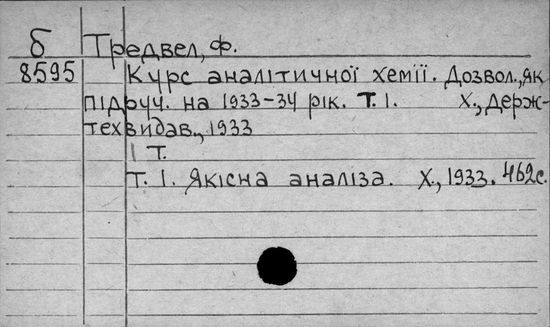 б Тредвел, Ф.
8595 Курс аналітичної хемії. Дозвол., як
підруч. на 1933-34 рік. Т. І. Х., Держ-
техвидав., 1933
1 Т.
Т. І. Якісна аналіза. Х., 1933. 462с.